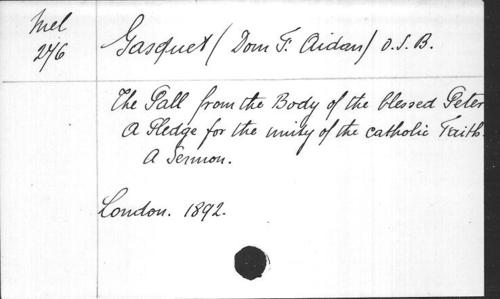 Mel
276
Gasquet (Dom F. Aidan) O.S.B.
The Pall from the Body of the blessed Peter
A Pledge for the unity of the catholic Faith.
A Sermon.
London. 1892.